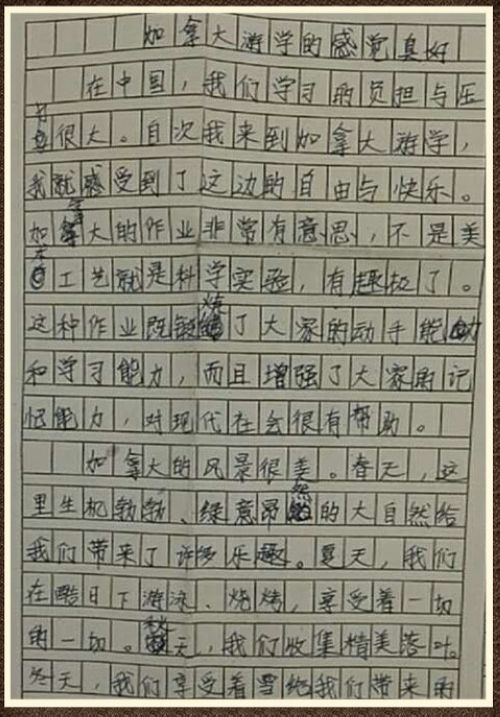 加拿大游学的感觉真好
在中国，我们学习的负担与压
力也很大。自次我来到加拿大游学，
我就感受到了这边的自由与快乐。
加拿大的作业非常有意思，不是美
术工艺就是科学实验，有趣极了。
这种作业既锻炼了大家的动手能力
和学习能力，而且增强了大家的记
忆能力，对现代在会很有帮助。
加拿大的风景很美。春天，这
里生机勃勃、绿意昂然的大自然给
我们带来了许多乐趣。夏天，我们
在酷日下游泳、烧烤，享受着一切
的一切。秋天，我们收集精美落叶。
冬天，我们享受着雪给我们带来的